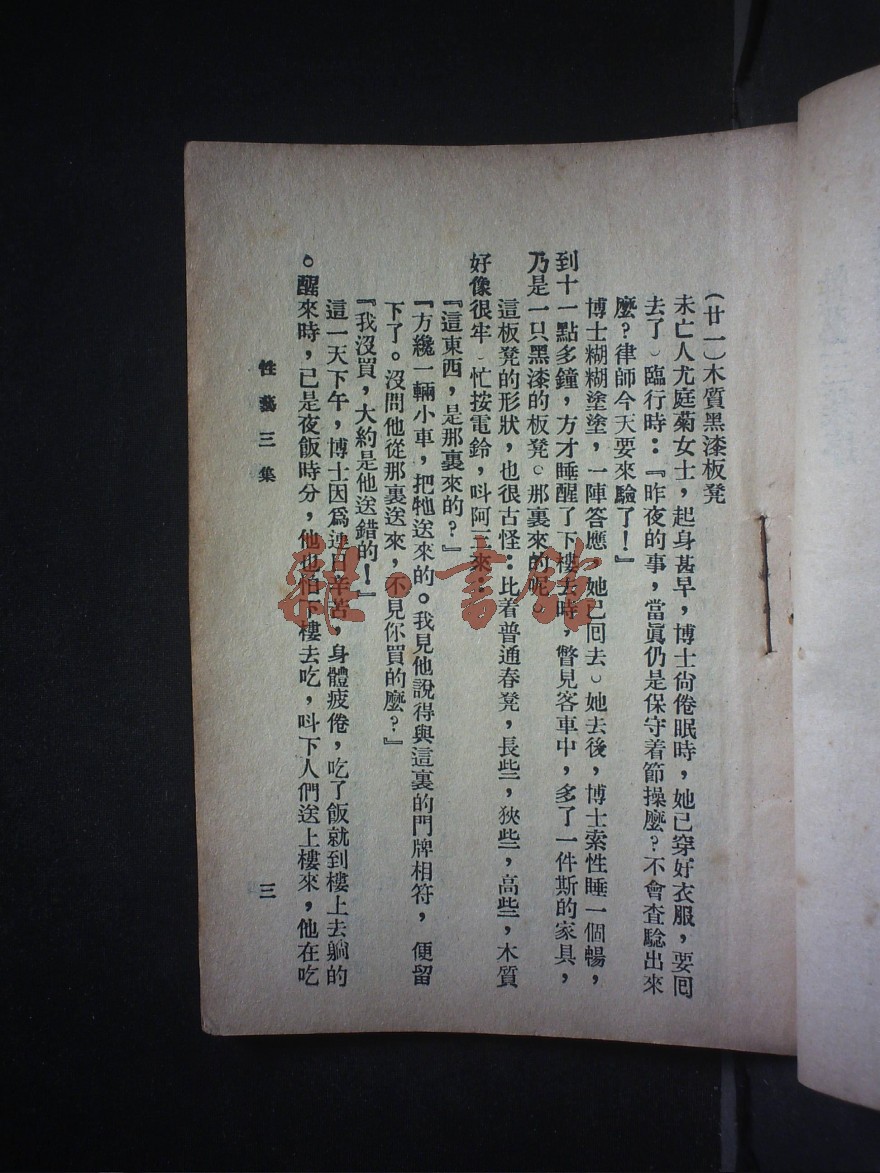 (廿一)木質黑漆板凳
未亡人尤庭菊女士，起身甚早，博士尙倦眠時，她已穿好衣服，要囘
去了。臨行時：『昨夜的事，當眞仍是保守着節操麼？不會査驗出來
麼？律師今天要來驗了！』
博士糊糊塗塗，一陣答應，她已囘去。她去後，博士索性睡一個暢，
到十一點多鐘，方才睡醒了下樓去時，瞥見客車中，多了一件斯的家具，
乃是一只黑漆的板凳。那裏來的呢。
這板凳的形狀，也很古怪：比着普通春凳，長些，狹些，高些，木質
好像很牢。忙按電鈴，呌阿三來：
『這東西，是那裏來的？』
『方纔一輛小車，把牠送來的。我見他說得與這裏的門牌相符，便留
下了。沒問他從那裏送來，不見你買的麼？』
『我沒買，大約是他送錯的！』
這一天下午，博士因爲連日辛苦，身體疲倦，吃了飯就到樓上去躺的
。醒來時，已是夜飯時分，他也怕下樓去吃，呌下人們送上樓來，他在吃
性藝三集
三
雜·書館